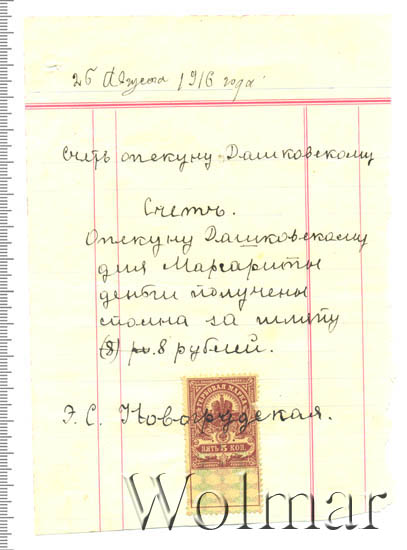 26 Августа 1916 года
Счетъ опекуну Дашковскому
Счетъ.
Опекуну Дашковскому
для Маргариты
деньги получены
сполна за шляпу
(8) ру. 8 рублей.
Э. С. Новогрудская.
ГЕРБОВАЯ МАРКА
5
ПЯТЬ 5 КОП.
Wolmar